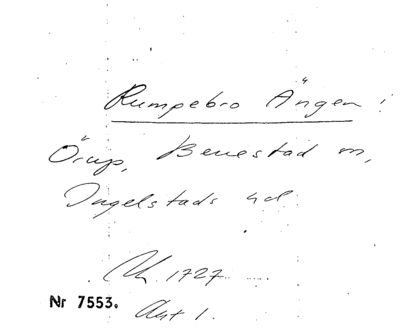 Rumpebro Ängen!
Örup, Benestad sn,
Ingelstads hd.
1727
Nr 7553.
Akt 1.